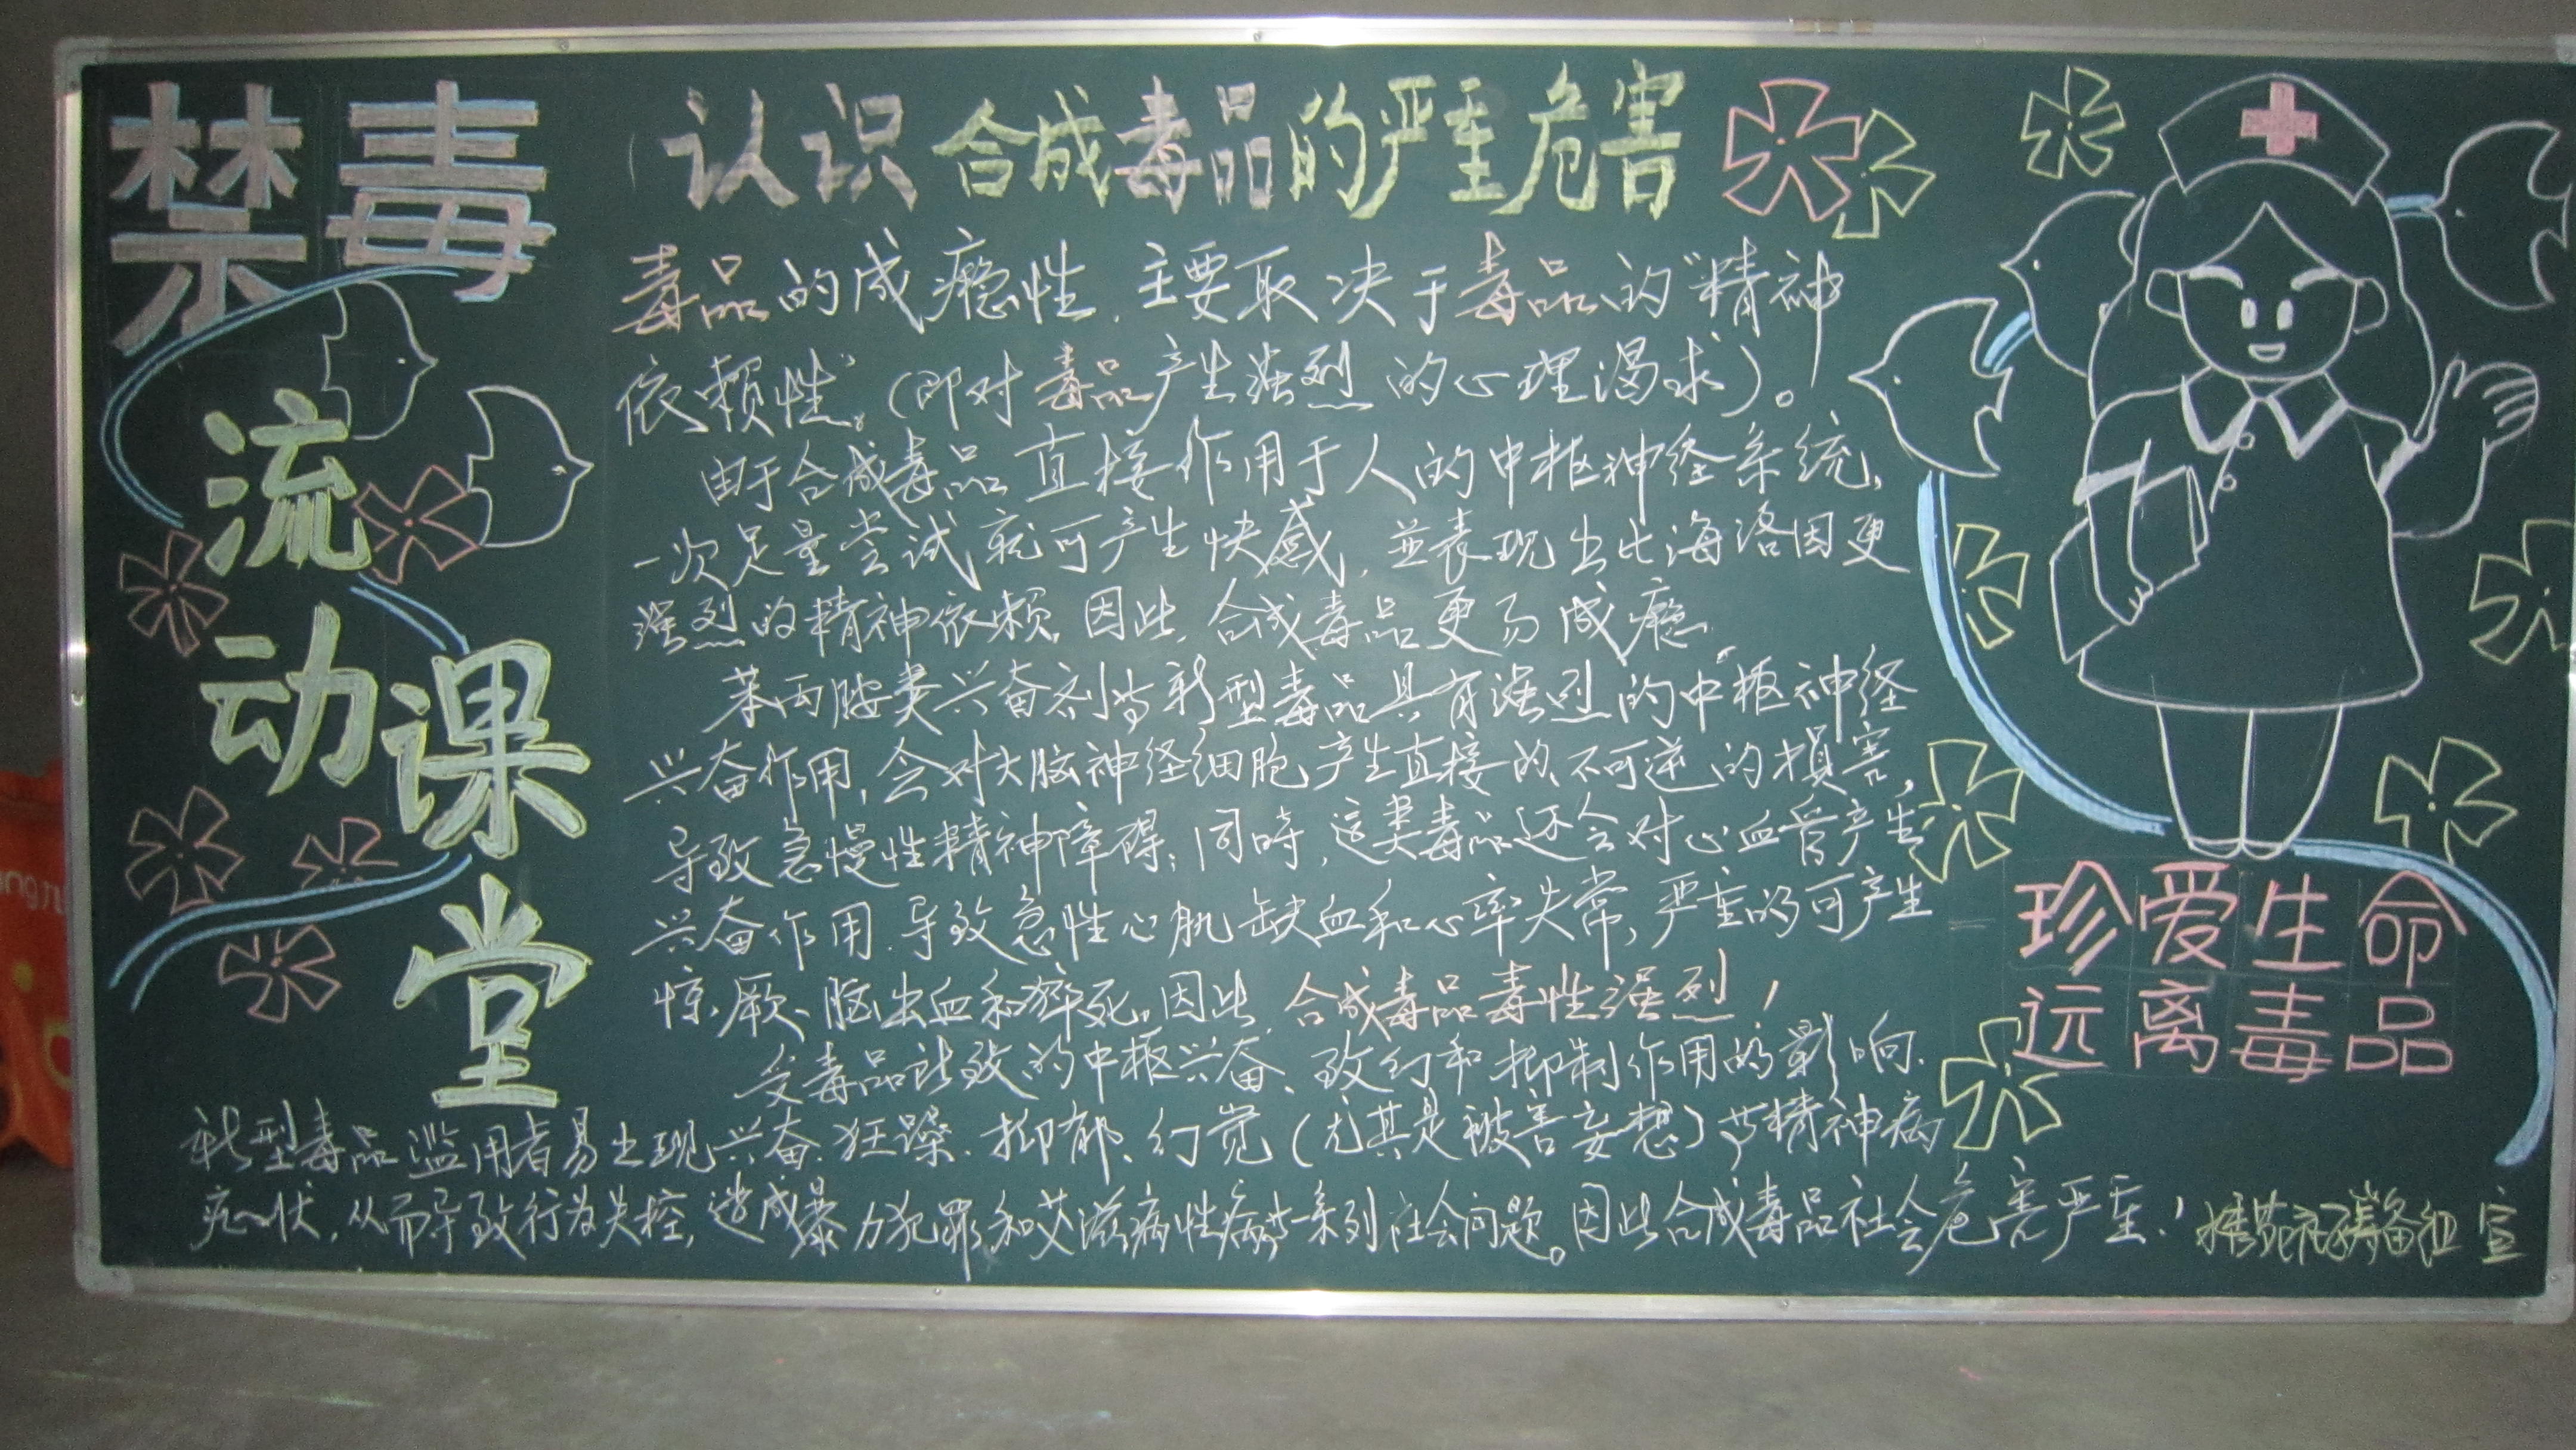 禁毒
流动
课堂
认识合成毒品的严重危害
毒品的成瘾性，主要取决于毒品的“精神
依赖性”。(即对毒品产生强烈的心理渴求)。
由于合成毒品直接作用于人的中枢神经系统，
一次足量尝试就可产生快感，并表现出比海洛因更
强烈的精神依赖，因此，合成毒品更易成瘾。
苯丙胺类兴奋剂等新型毒品具有强烈的中枢神经
兴奋作用，会对大脑神经细胞产生直接的、不可逆的損害，
导致急慢性精神障碍；同時，這类毒品还会对心血管产生
兴奋作用，导致急性心肌缺血和心率失常，严重的可产生
惊厥、脑出血和猝死。因此，合成毒品毒性强烈！
受毒品所致的中枢兴奋、致幻和抑制作用的影响，
新型毒品滥用者易出现兴奋、狂躁、抑郁、幻觉(尤其是被害妄想)等精神病
症状，从而导致行为失控，造成暴力犯罪和艾滋病性病等一系列社会问题。因此合成毒品社会危害严重！
珍爱生命
远离毒品
宣